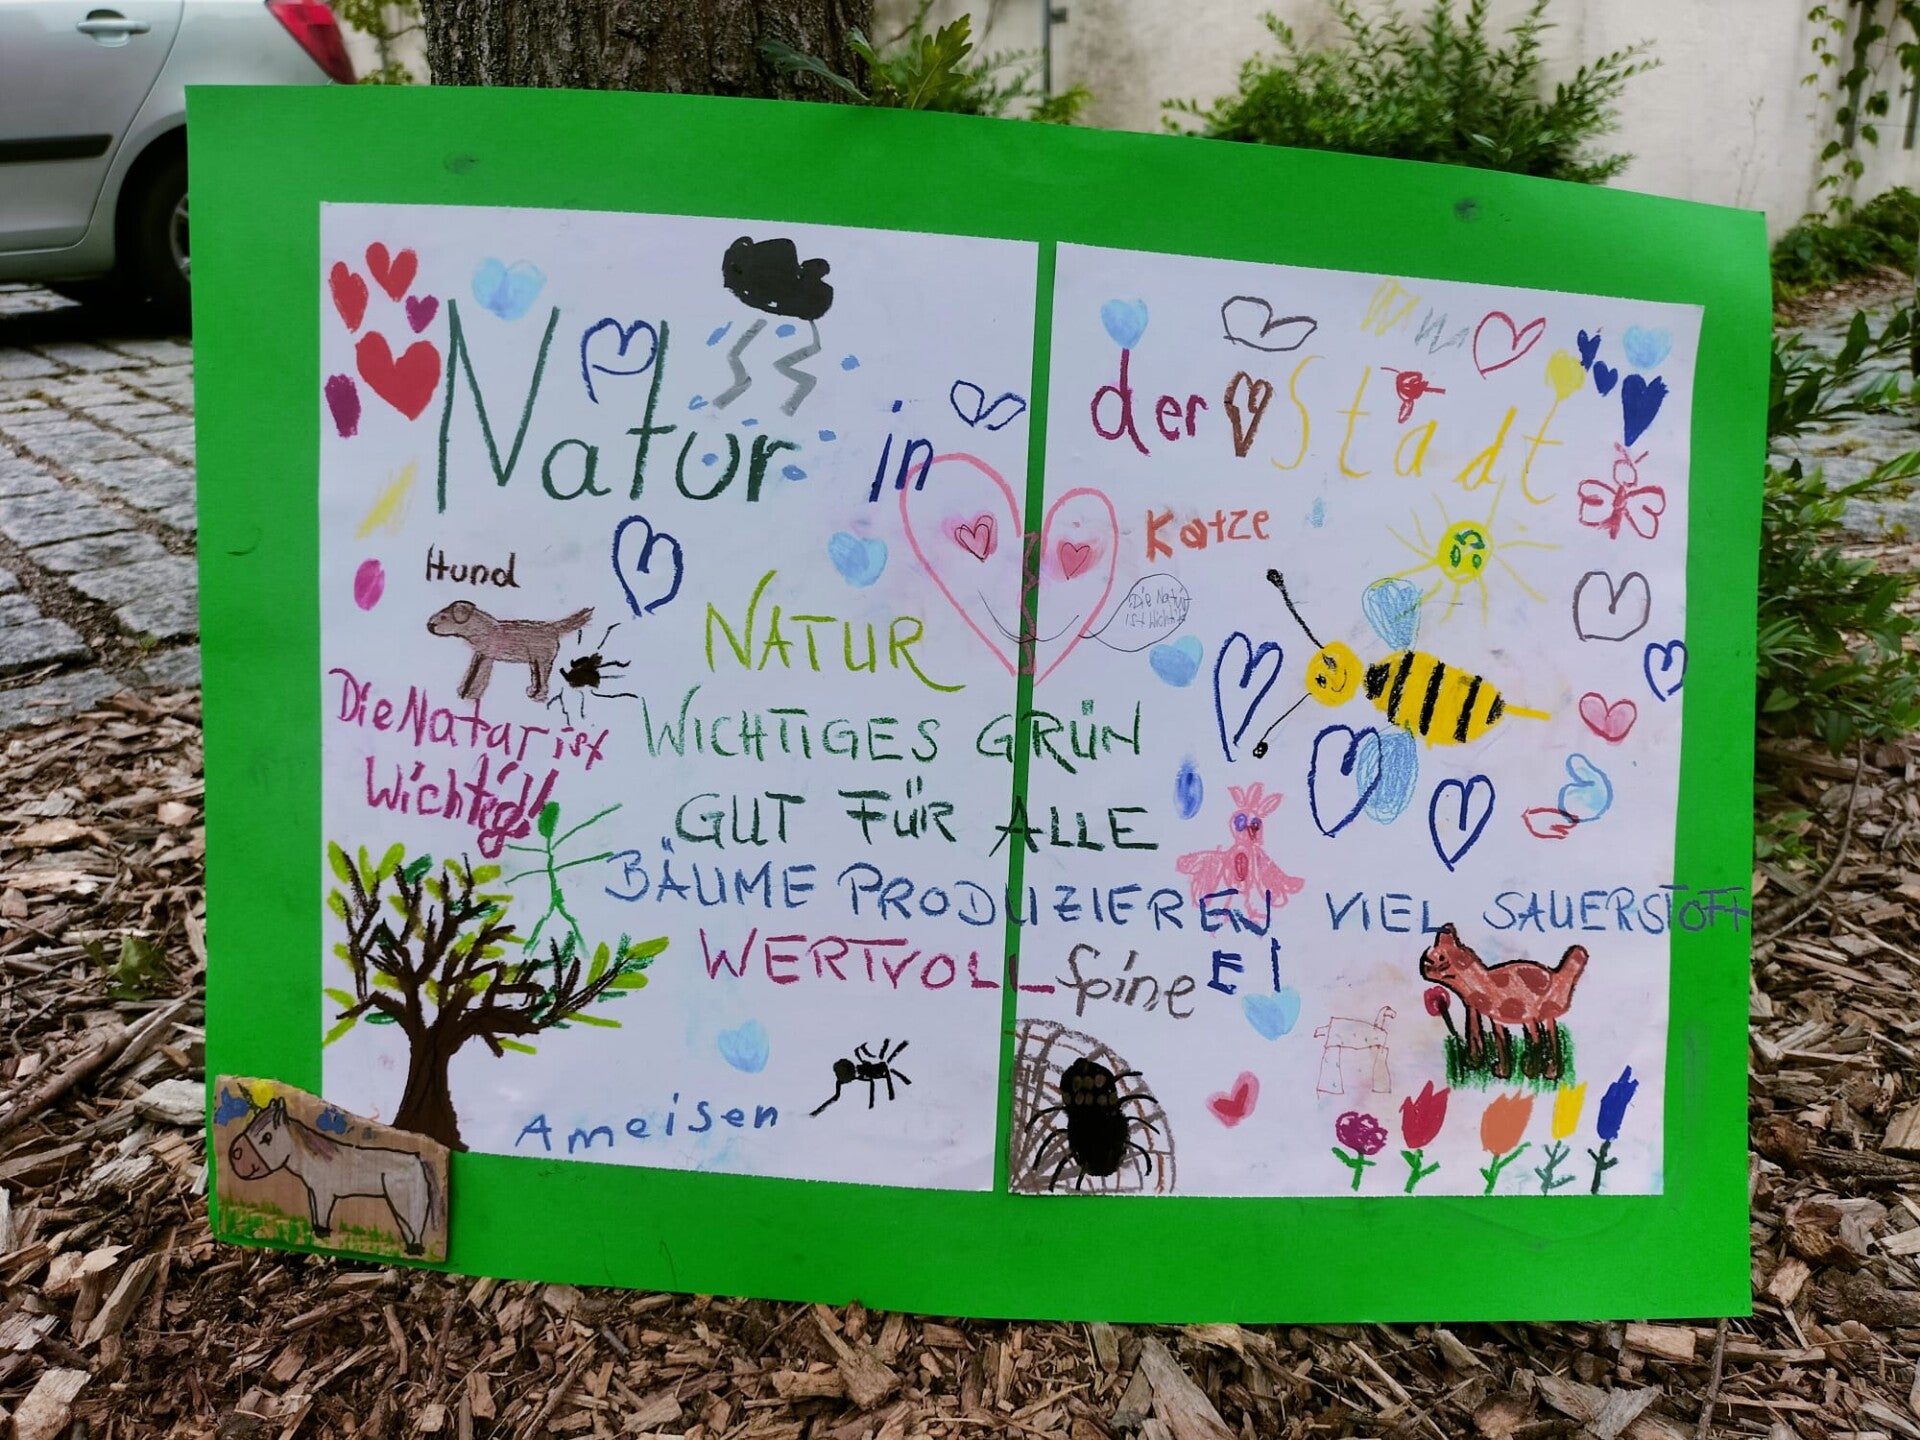 Natur in der Stadt
Hund
Katze
Die Natur ist Wichtig
NATUR
Die Natar ist
Wichtig!!
WICHTIGES GRÜN
GUT FÜR ALLE
BÄUME PRODUZIEREN VIEL SAUERSTOFF
WERTVOLL
Spine
EI
Ameisen